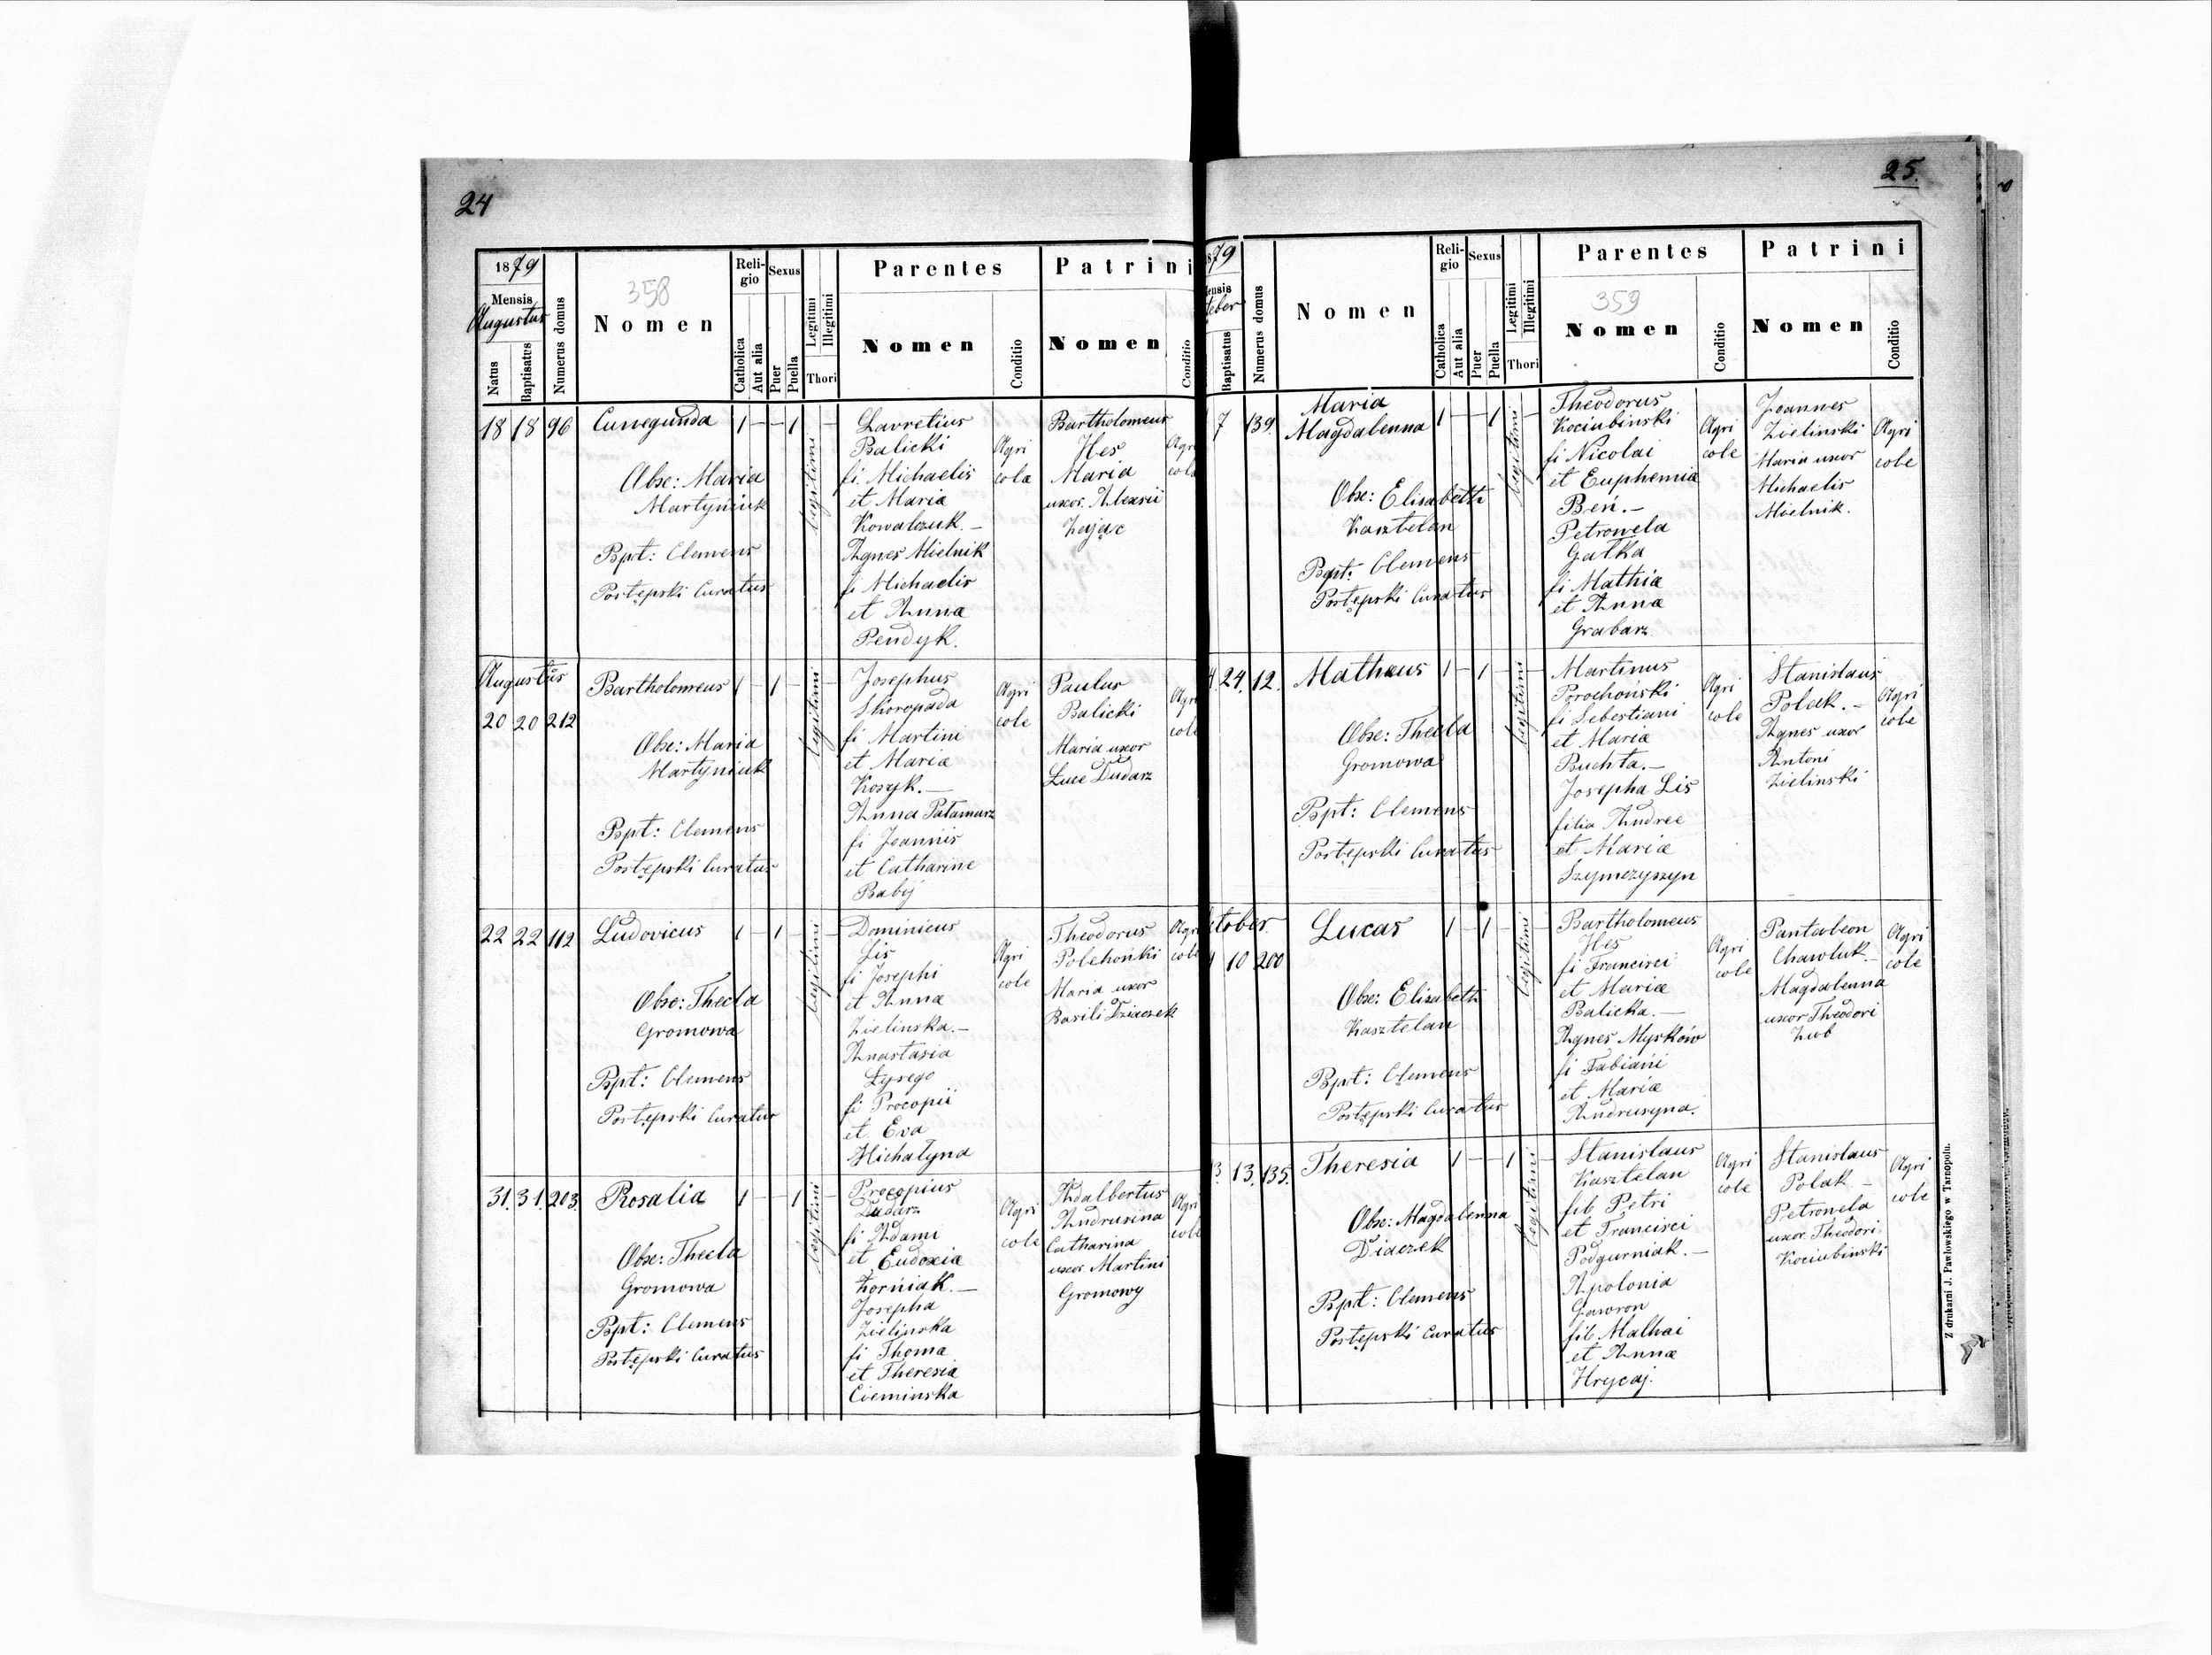 24
1879
Mensis
Augustus
Natus
Baptisatus
Numerus domus
358
Nomen
Religio
Catholica
Aut alia
Sexus
Puer
Puella
Legitimi
Illegitimi
Thori
Parentes
Nomen
Conditio
Patrini
Nomen
Conditio
18 18 96
Cunegunda
1 - - 1
legitimi
Obse: Maria
Martyniuk
Bpt: Clemens
Postępski Curatus
Lavretius
Balicki
fi. Michaelis
et Maria
Kowalczuk. -
Agnes Mielnik
fi Michaelis
et Anna
Pendyk.
Agri
cola
Bartholomeus
Hes
Maria
uxor. Alexii
Zając
Agri
cola
Augustus
20 20 212
Bartholomeus
1 - 1 -
legitimi
Obse: Maria
Martyniuk
Bpt: Clemens
Postępski Curatus
Josephus
Skoropada
fi Martini
et Maria
Kosyk. -
Anna Patamarz
fi Joannis
et Catharine
Babij
Agri
cole
Paulus
Balicki
Maria uxor
Luce Dudarz
Agri
cole
22 22 112
Ludovicus
1 - 1 -
legitimi
Obse: Thecla
Gromowa
Bpt: Clemens
Postępski Curatus
Dominicus
Lis
fi Josephi
et Anna
Zielinska. -
Anastasia
Łysego
fi Procopii
et Eva
Michałyna
Agri
cole
Theodorus
Polehońki
Maria uxor
Basili Dziaczek
Agri
cole
31. 31. 203
Rosalia
1 - - 1
legitimi
Obse: Thecla
Gromowa
Bpt: Clemens
Postępski Curatus
Procopius
Dudarz
fi Adami
et Eudoxia
Korniak. -
Josepha
Zielinska
fi Thoma
et Theresia
Cieminska
Agri
cole
Adalbertus
Andrusina
Catharina
uxor. Martini
Gromowy
Agri
cole
25.
79
Baptisatus
Numerus domus
Nomen
Religio
Catholica
Aut alia
Sexus
Puer
Puella
Legitimi
Illegitimi
Thori
Parentes
359
Nomen
Conditio
Patrini
Nomen
Conditio
7 139.
Maria
Magdalenna
1 - - 1
legitimi
Obse: Elisabeth
Kasztelan
Bpt: Clemens
Postępski Curatus
Theodorus
Kociubinski
fi Nicolai
et Euphemia
Beń. -
Petronela
Gałka
fi Mathia
et Anna
Grabarz
Agri
cole
Joannes
Zielinski
Maria uxor
Michaelis
Mielnik.
Agri
cole
24. 12.
Matheus
1 - 1 -
legitimi
Obse: Thecla
Gromowa
Bpt: Clemens
Postępski Curatus
Martinus
Porochonski
fi Sebestiani
et Maria
Buchta. -
Josepha Lis
filia Andree
et Maria
Szymczyszyn
Agri
cole
Stanislaus
Polak. -
Agnes uxor
Antoni
Zielinski
Agri
cole
October
10 200
Lucas
1 - 1 -
legitimi
Obse: Elisabeth
Kasztelan
Bpt: Clemens
Postępski Curatus
Bartholomeus
Hes
fi Francisci
et Maria
Balicka. -
Agnes Myskόw
fi Fabiani
et Maria
Andrusyna.
Agri
cole
Pantaleon
Chawluk. -
Magdalenna
uxor Theodori
Zub
Agri
cole
13. 135.
Theresia
1 - - 1
legitimi
Obse: Magdalenna
Diaczek
Bpt: Clemens
Postępski Curatus
Stanislaus
Kasztelan
fil. Petri
et Francisci
Podgurniak. -
Apolonia
Gawron
fil. Mathai
et Anna
Hrycaj.
Agri
cole
Stanislaus
Polak -
Petronela
uxor Theodori
Kociubinski
Agri
cole
Z drukarni J. Pawłowskiego w Tarnopolu.